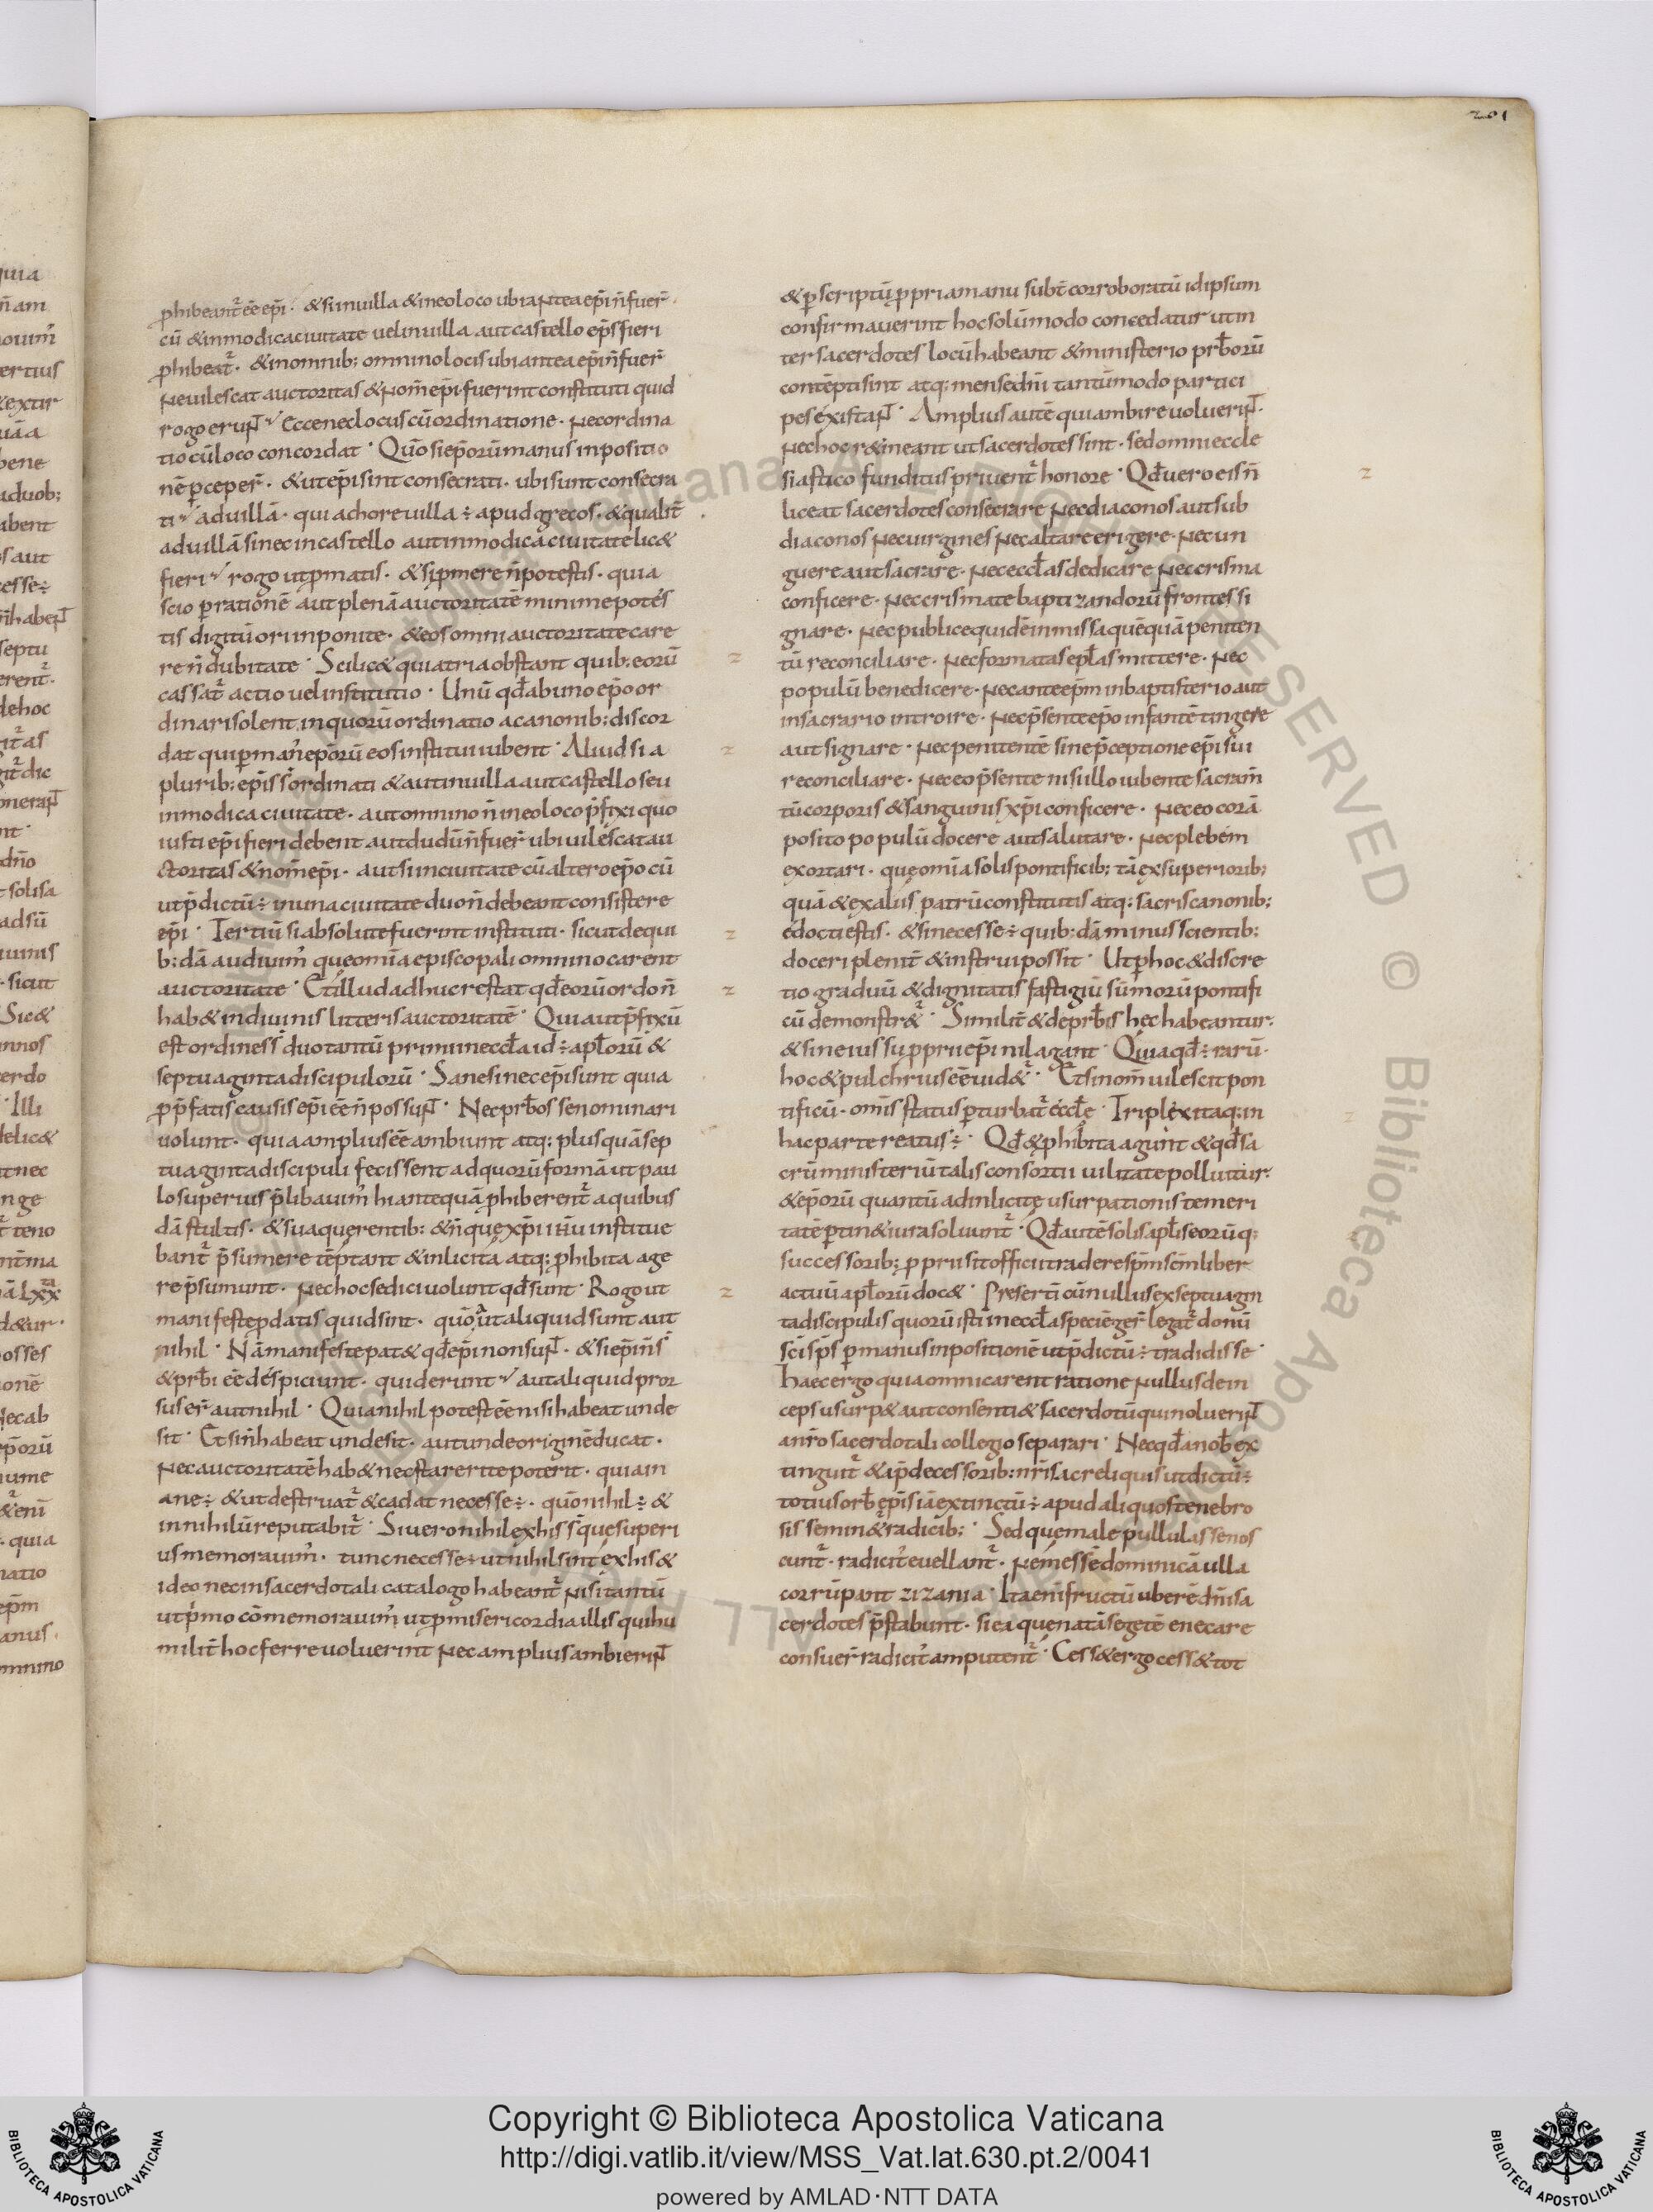 201
phibeant̉ ēē ep̄i · & si in uilla & in eo loco ubi antea ep̄i n̄ fuer̄ ·
cū & in modica ciuitate uel in uilla aut castello ep̄s fieri
phibeat̉ · & in omnib; omnino locis ubi antea ep̄i n̄ fuer̄
Ne uilescat auctoritas & nom̄ ep̄i fuerint constituti quid
rogo erunt̄ Ecce nec locus cū ordinatione · Nec ordina
tio cū loco concordat · Quō si ep̄orū manus inpositio
nē pceper̄ · & ut ep̄i sint consecrati · ubi sunt consecra
ti ad uillā · qui a chore uilla ÷ apud grecos · & qualit̄
ad uillā si nec in castello aut in modica ciuitate lic&
fieri rogo ut pmatis · & si pmere n̄ potestis · quia
scio p rationē aut plenā auctoritatē minime potes
tis digitū ori inponite · & eos omni auctoritate care
re n̄ dubitate · Scilic& quia tria obstant quib; eorū
cassat̉ actio uel institutio · Unū qd̄ ab uno ep̄o or
dinari solent in quorū ordinatio a canonib; discor
dat qui p man̉ ep̄orū eos institui iubent · Aliud si a
plurib; ep̄is s̄ ordinati & aut in uilla aut castello seu
in modica ciuitate · aut omnino n̄ in eo loco p̄fixi quo
iusti ep̄i fieri debent aut dudū n̄ fuer̄ ubi uilescat au
ctoritas & nom̄ ep̄i · aut si in ciuitate cū altero ep̄o cū
ut p̄dictū ÷ in una ciuitate duo n̄ debeant consistere
ep̄i · Tertiū si absolute fuerint instituti · sicut de qui
b; dā audiuim̉ que om̄ia episcopali omnino carent
auctoritate · Et illud adhuc restat qd̄ eorū ordo n̄
hab& in diuinis litteris auctoritatē · Qui aut p̄fixū
est ordines s̄ duo tantū primi in eccl̄a id ÷ apl̄orū &
septuaginta discipulorū · Sane si nec ep̄i sunt quia
p p̄fatis causis ep̄i ēē n̄ possunt̄ · Nec prb̄os se nominari
uolunt · quia amplius ēē ambiunt atq; plus quā sep
tuaginta discipuli fecissent ad quorū formā ut pau
lo superius p̄libauim̉ hi antequā phiberent̉ a quibus
dā stultis · & sua querentib; & n̄ que xp̄i ih̄u institue
bant̉ p̄sumere tēptant & inlicita atq; phibita age
re p̄sumunt · Nec hoc se dici uolunt qd̄ sunt · Rogo ut
manifeste pdatis quid sint · quō aut aliquid sunt aut
nihil · Nā manifeste pat& qd̄ ep̄i non sunt̄ · & si ep̄i n̄ s̄
& prb̄i ēē despiciunt · quid erunt aut aliquid pror
sus er̄ aut nihil · Quia nihil potest ēē nisi habeat unde
sit · Et si n̄ habeat unde sit · aut unde originē ducat ·
Nec auctoritatē hab& nec stare rite poterit · quia in
ane ÷ & ut destruat̉ & cadat necesse ÷ · quō nihil ÷ &
in nihilū reputabit̉ · Si uero nihil ex his s̄ que superi
us memorauim̉ · tunc necesse ÷ ut nihil sint ex his &
ideo nec in sacerdotali catalogo habeant̉ nisi tantū
ut p̄mo cōmemorauim̉ ut p misericordia illis qui hu
milit̄ hoc ferre uoluerint Nec amplius ambierint̄
& p scriptū ppria manu subt̄ corroboratū id ipsum
confirmauerint hoc solūmodo concedatur ut in
ter sacerdotes locū habeant & ministerio prb̄orū
contēpti sint atq; mense dn̄i tantūmodo partici
pes existant̄ · Amplius autē qui ambire uoluerint̄ ·
Nec hoc r&ineant ut sacerdotes sint · sed omni eccle
siastico funditus priuent̉ honore · Qd̄ uero eis n̄
liceat sacerdotes consecrare Nec diaconos aut sub
diaconos Nec uirgines Nec altare erigere · Nec un
guere aut sacrare · Nec eccl̄as dedicare Nec crisma
conficere · Nec crismate baptizandorū frontes si
gnare · Nec publice quidē in missa quēquā peniten
tū reconciliare · Nec formatas epl̄as mittere · Nec
populū benedicere · Nec ante ep̄m in baptisterio aut
in sacrario introire · Nec p̄sente ep̄o infantē tingere
aut signare · Nec penitentē sine p̄ceptione ep̄i sui
reconciliare · Nec eo p̄sente nisi illo iubente sacram̄
tū corporis & sanguinis xp̄i conficere · Nec eo corā
posito populū docere aut salutare · Nec plebem
exortari · que om̄ia solis pontificib; tā ex superiorib;
quā & ex aliis patrū constitutis atq; sacris canonib;
edocti estis · & si necesse ÷ quib; dā minus scientib;
doceri plenit̄ & instrui possit · Ut p hoc & discre
tio graduū & dignitatis fastigiū sūmorū pontifi
cū demonstr&̉ · Similit̄ & de prb̄is hec habeantur ·
& sine iussu pprii ep̄i nil agant · Quia qd̄ ÷ rarū ·
hoc & pulchrius ēē uid&̉ · Et si nom̄ uilescit pon
tificū · om̄is status pturbat̉ eccl̄e · Triplex itaq; in
hac parte reatus ÷ · Qd̄ & phibita agunt & qd̄ sa
crū ministeriū talis consortii uilitate polluitur ·
& ep̄orū quantū ad inlicite usurpationis temeri
tatē ptin& iura soluunt̉ · Qd̄ autē solis apl̄is eorūq;
successorib; pprii sit officii tradere sp̄m sc̄m liber
actuū apl̄orū doc& · Presertī cū nullus ex septuagin
ta discipulis quorū isti in eccl̄a speciē ger̄ legat̉ donū
sc̄i sp̄s p manus inpositionē ut p̄dictū ÷ tradidisse ·
haec ergo quia omni carent ratione Nullus dein
ceps usurp& aut consenti& sacerdotū qui noluerint̄
a nr̄o sacerdotali collegio separari · Nec qd̄ a nob̄ ex
tinguit̉ & a p̄decessorib; nr̄is ac reliquis ut dictū ÷
totius orb̄ ep̄is iā extinctū ÷ apud aliquos tenebro
sis semin&̉ radicib; · Sed que male pullulasse nos
cunt̉ · radicit̉ euellant̉ · Ne messē dominicā ulla
corrūpant zizania · Ita eni fructū uberē dn̄i sa
cerdotes p̄stabunt · si ea que natā segetē enecare
consuer̄ radicit̉ amputent̉ · Cess& ergo cess& tot
Copyright © Biblioteca Apostolica Vaticana
http://digi.vatlib.it/view/MSS_Vat.lat.630.pt.2/0041
powered by AMLAD·NTT DATA